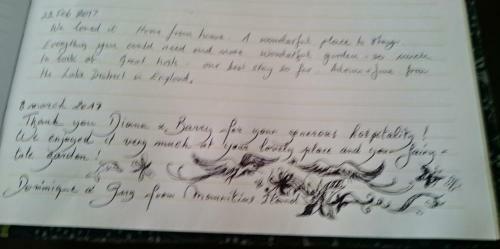 22 Feb 2017
We loved it Home from home. A wonderful place to stay.
Everything you could need and more wonderful garden - so much
to look at. Great hosts - our best stay so far. & June from
the Lake District in England.
8 march 2017
Thank you Diana & Barry for your generous hospitality !
We enjoyed it very much at your lovely place and your fairy-
tale garden !
Dominique & from Mauritius Island